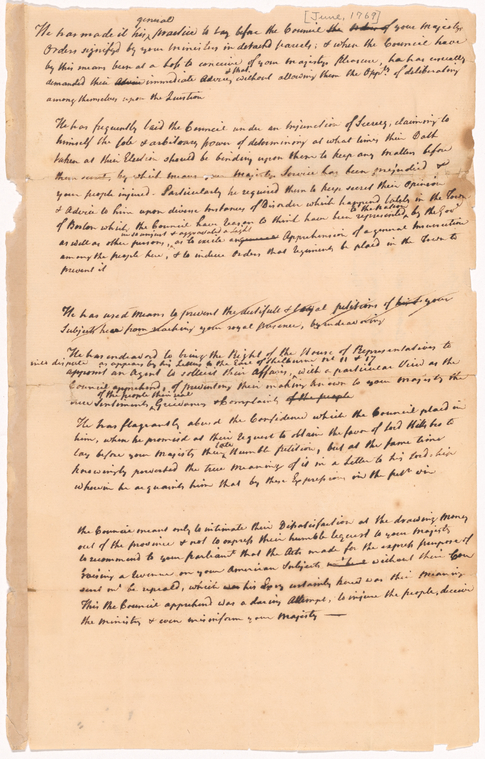 [June, 1769]
general
He has made it his practice to lay before the Council the orders of your Majestys
Orders signifyd by your ministers in detached parcels; & when the Council have
by this means been at a loss to conceive of your majestys pleasure, he has usually
demanded their Advice immediate Advice, & that without allowing them the Oppty of deliberating
among themselves upon the Question
He has frequently laid the Council under an Injunction of Secrecy, claiming to
himself the sole & arbitrary power of determining at what times their Oath
taken at their Election should be binding upon them to keep any matters before
them secret, by which means your Majestys Service has been prejudicd &
your people injured. Particularly he required them to keep secret their Opinion
& Advice to him upon diverse Instances of Disorder which happend lately in the Town
of Boston which the Council have reason to think have been represented, by the Govr
to the nation
in so unjust & aggravated a light
as well as other persons, as to excite an general Apprehension of a general Insurrection
among the people here, & to induce Orders that regiments be placd in the Town to
prevent it
He has used means to prevent the dutifull & loyal petitions of his & your
Subjects here from reaching your royal presence, by endeavoring
He has endeavord to bring the Right of the House of Representatives to
into dispute as appears by his Letters to the Earl of Shelburne
appoint an Agent to sollicit their Affairs, with a particular View as the
Council apprehend, of preventing their making known to your Majesty the
of the people their real
true Sentiments, Grievances & Complaints of the people
He has flagrantly abused the Confidence which the Council placd in
him, when he promisd at their request to obtain the favor of Lord Hillsbro to
lay before your Majesty their late Humble petition, but at the same time
knowingly perverted the true meaning of it in a Letter to his Lordship
wherein he acquaints him that by these Expressions in the petn viz
the Council meant only to intimate their Dissatisfaction at the drawing Money
out of the province & not to express their humble request to your Majesty
to recommend to your parliament that the Acts made for the express purpose of
Raising a Revenue on your American Subjects without their Con
sent might be repeald, which was certainly their meaning
This the Council apprehend was a daring Attempt, to injure the people, deceive
the Ministry & even misinform your Majesty